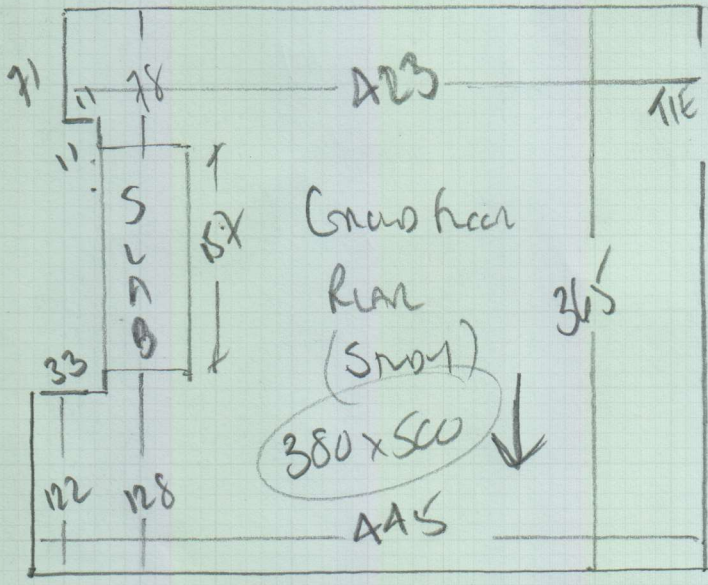 71
11
78
423
TIE
11
SLAB
157
Ground Floor
Rear
(Study)
345
33
380 x 500
122
128
445